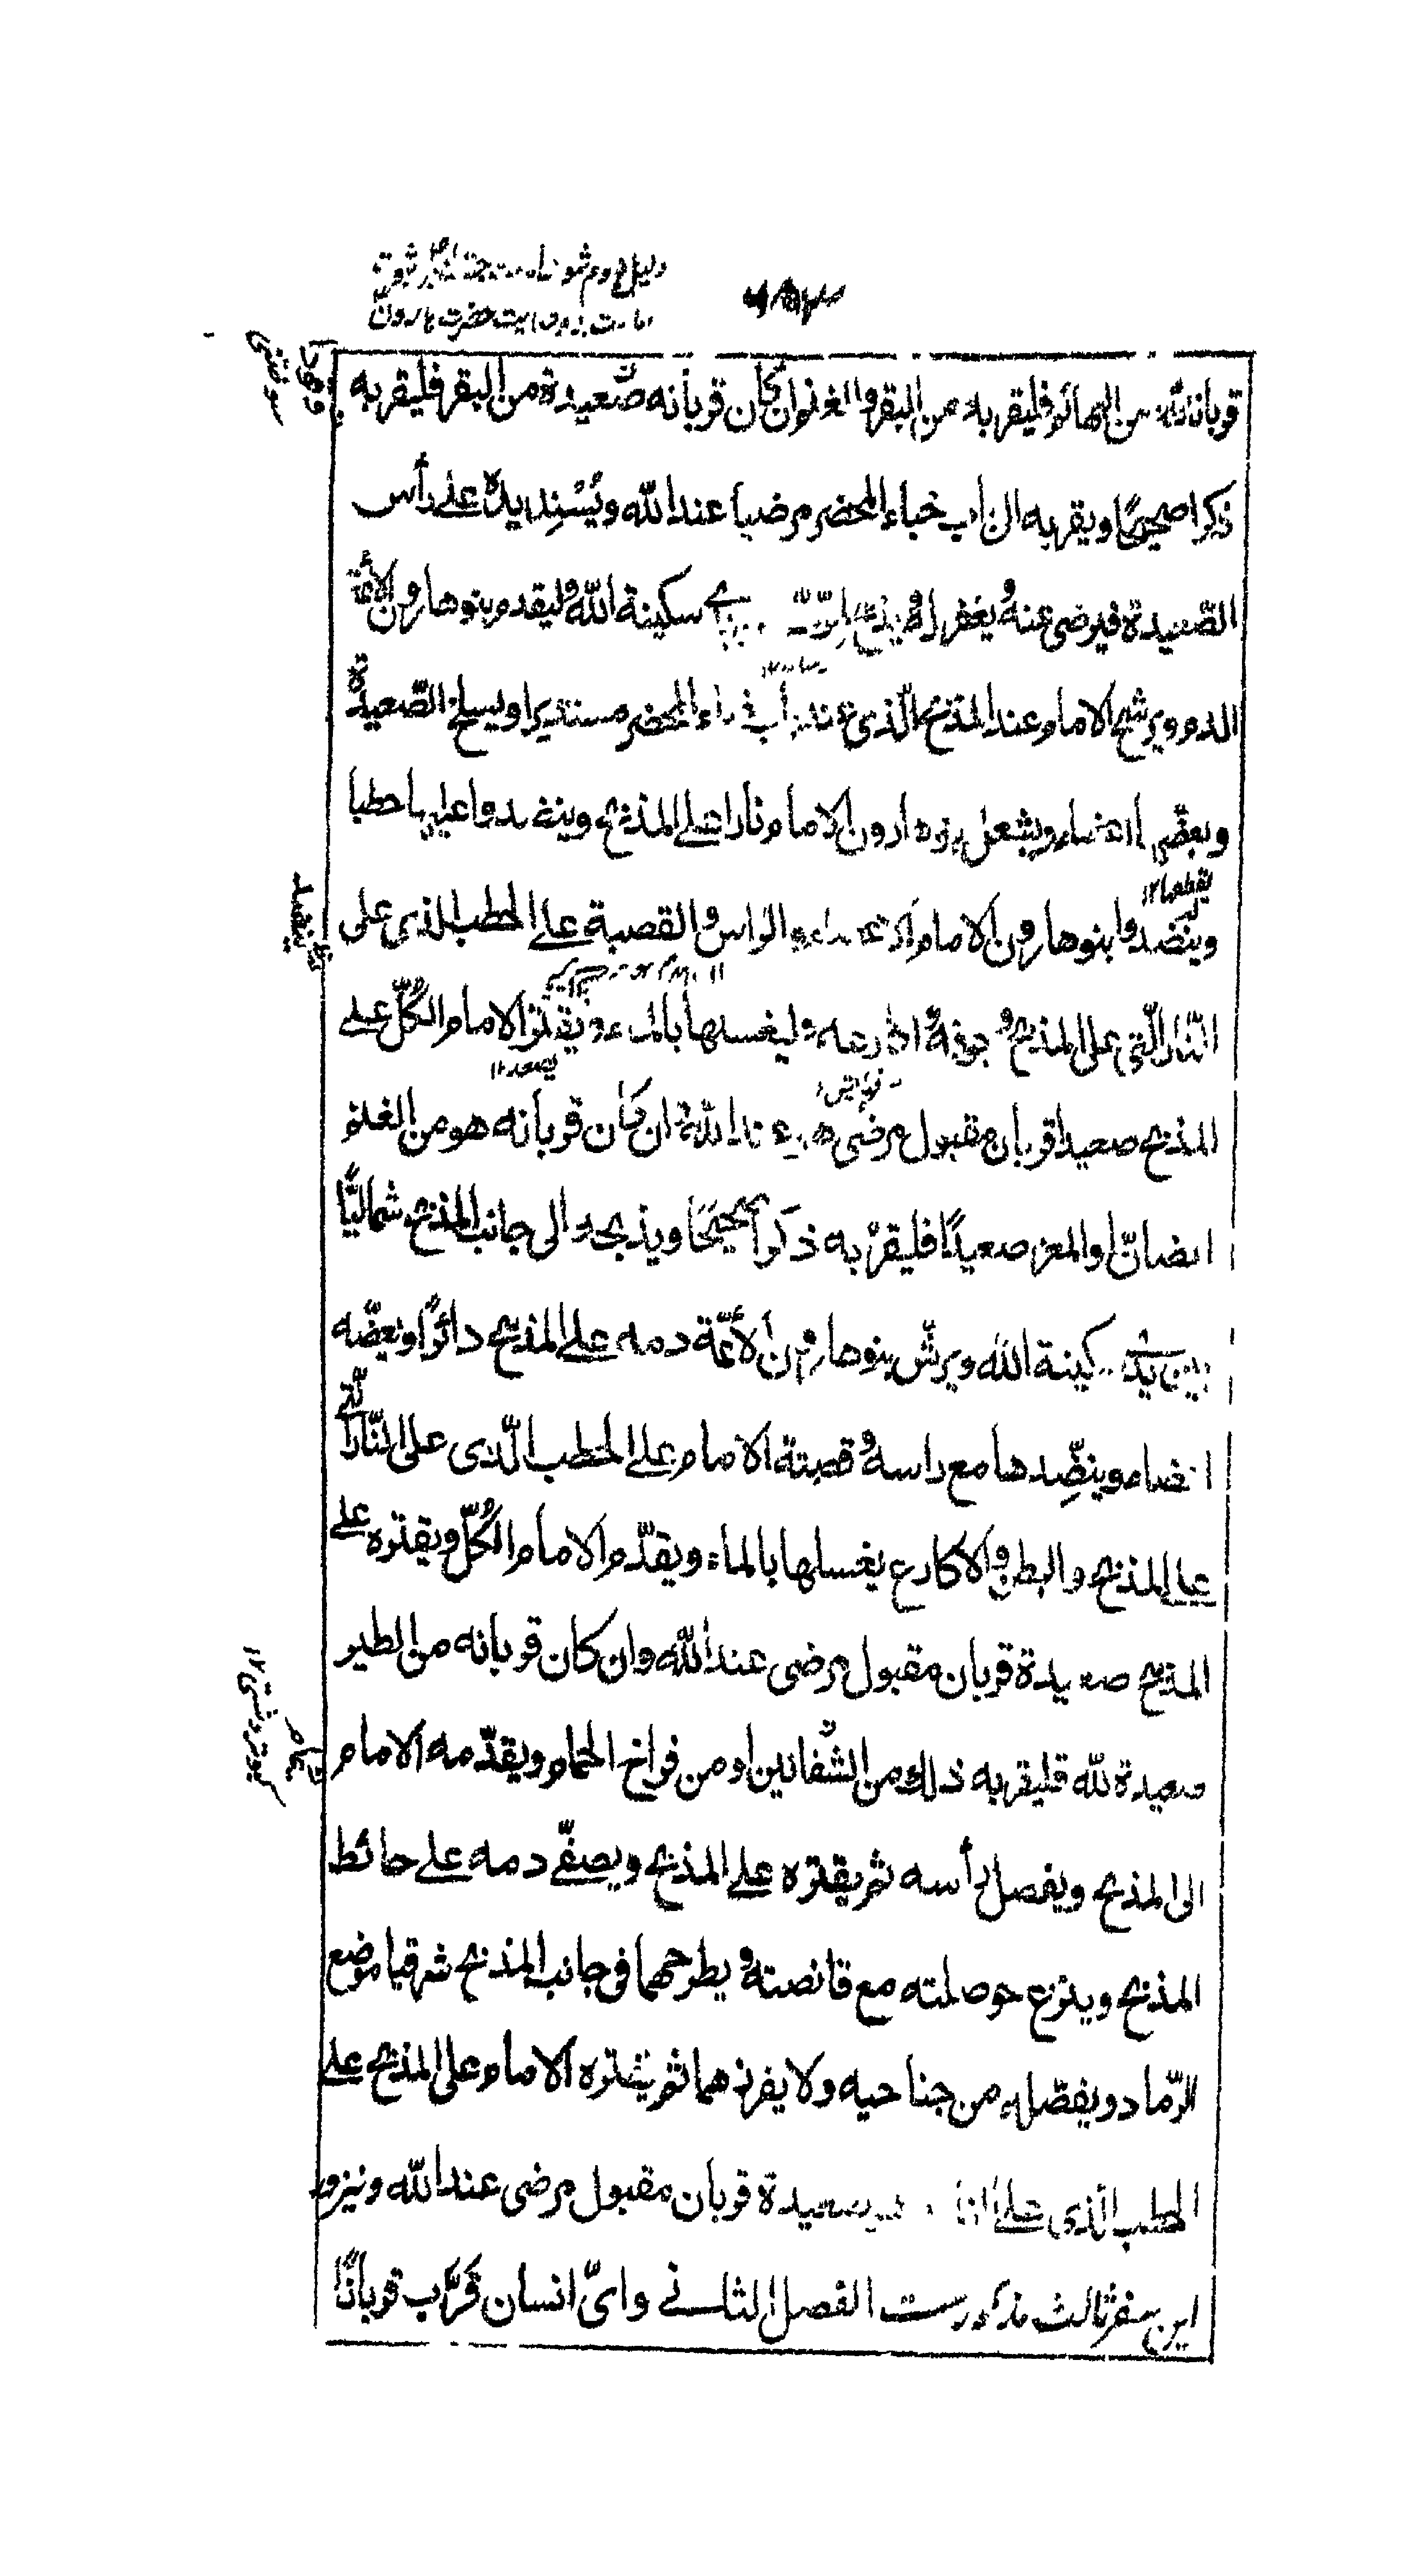 قربانا لله من البهائم فليقربه من البقر والغنم ان كان قربانه صّعيدة من البقر فليقربه
ذكرا صحيحًا ويقربه الى باب خباء المحضر مرضيا عند الله ويُسْنِد يده على رأس
الصّعيدة فيرضى عنه ويغفر له سكينة الله وليقدم بنو هارون الائمّة
الدم ويرشح الامام عند المذبح الّذى عند باب خباء المحضر مستديرا ويسلخ الصّعيدة
ويعضّى اعضاء ويشعل بنو هارون الامام نارا على المذبح وينضدوا عليها حطبا
وينضّدوا بنو هارون الامام الاعضاء والراس والقصبة على الحطب الذى على
النّار الّتى على المذبح وجوفه واكارعه وليغسلها بالماء ويقتر الامام الكُلّ على
المذبح صعيدا قربان مقبول مرضى عند الله وان كان قربانه هو من الغنم
الضانّ او المعز صعيدًا فليقرّبه ذكرا صحيحًا ويذبحه الى جانب المذبح شماليًّا
بين يدى سكينة الله ويرشّ بنو هارون الأئمّة دمه على المذبح دائرًا ويعضّه
اعضاء وينضّدها مع راسه وقصبته الامام على الحطب الّذى على النّار الّتى
على المذبح والبطن والاكارع يغسلها بالماء ويقدّم الامام الكُلّ ويقتره على
المذبح صعيدة قربان مقبول مرضى عند الله وان كان قربانه من الطير
صعيدة لله فليقربه ذلك من الشّفانين او من فراخ الحمّام ويقدّمه الامام
الى المذبح ويفصل رأسه ثم يقتره على المذبح ويصفّى دمه على حائط
المذبح وينزع حوصلته مع قانصته ويطرحهما فى جانب المذبح شرقيا موضع
الرّماد ويفصّله من جناحيه ولا يفرزهما ثم يقتره الامام على المذبح على
الحطب الّذى على النار صعيدة قربان مقبول مرضى عند الله ونيز در
اين سفر ثالث مذكورست الفصل الثانى واىّ انسان قَرَّب قربانًا